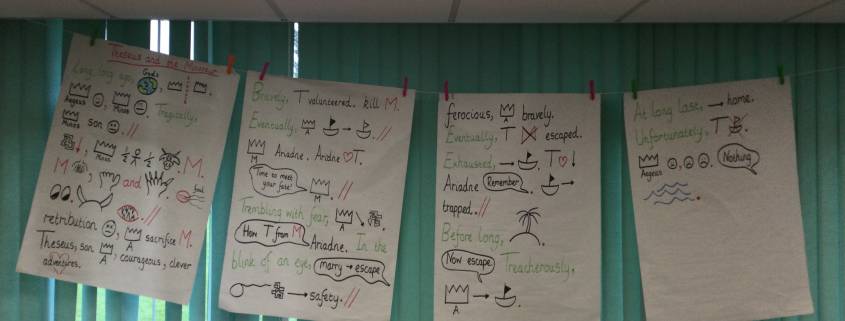 Theseus and the Minotaur
Long, long ago, Gods
Aegeus Minos Tragically,
Minos son
Minos ½ ½ M.
M and
foul
retribution A sacrifice M.
Theseus, son A, courageous, clever
adventures.
Bravely, T volunteered.. kill M.
Eventually, A
M Ariadne. Ariadne T.
Time to meet
your fate! M.
Trembling with fear, A
How T from M Ariadne. In the
blink of an eye, marry → escape
→ safety.
ferocious, A bravely.
Eventually, T escaped.
Exhausted, → T
Ariadne Remember →
trapped..
Before long,
Now escape Treacherously,
A →
At long last, → home.
Unfortunately, T
Aegeus Nothing